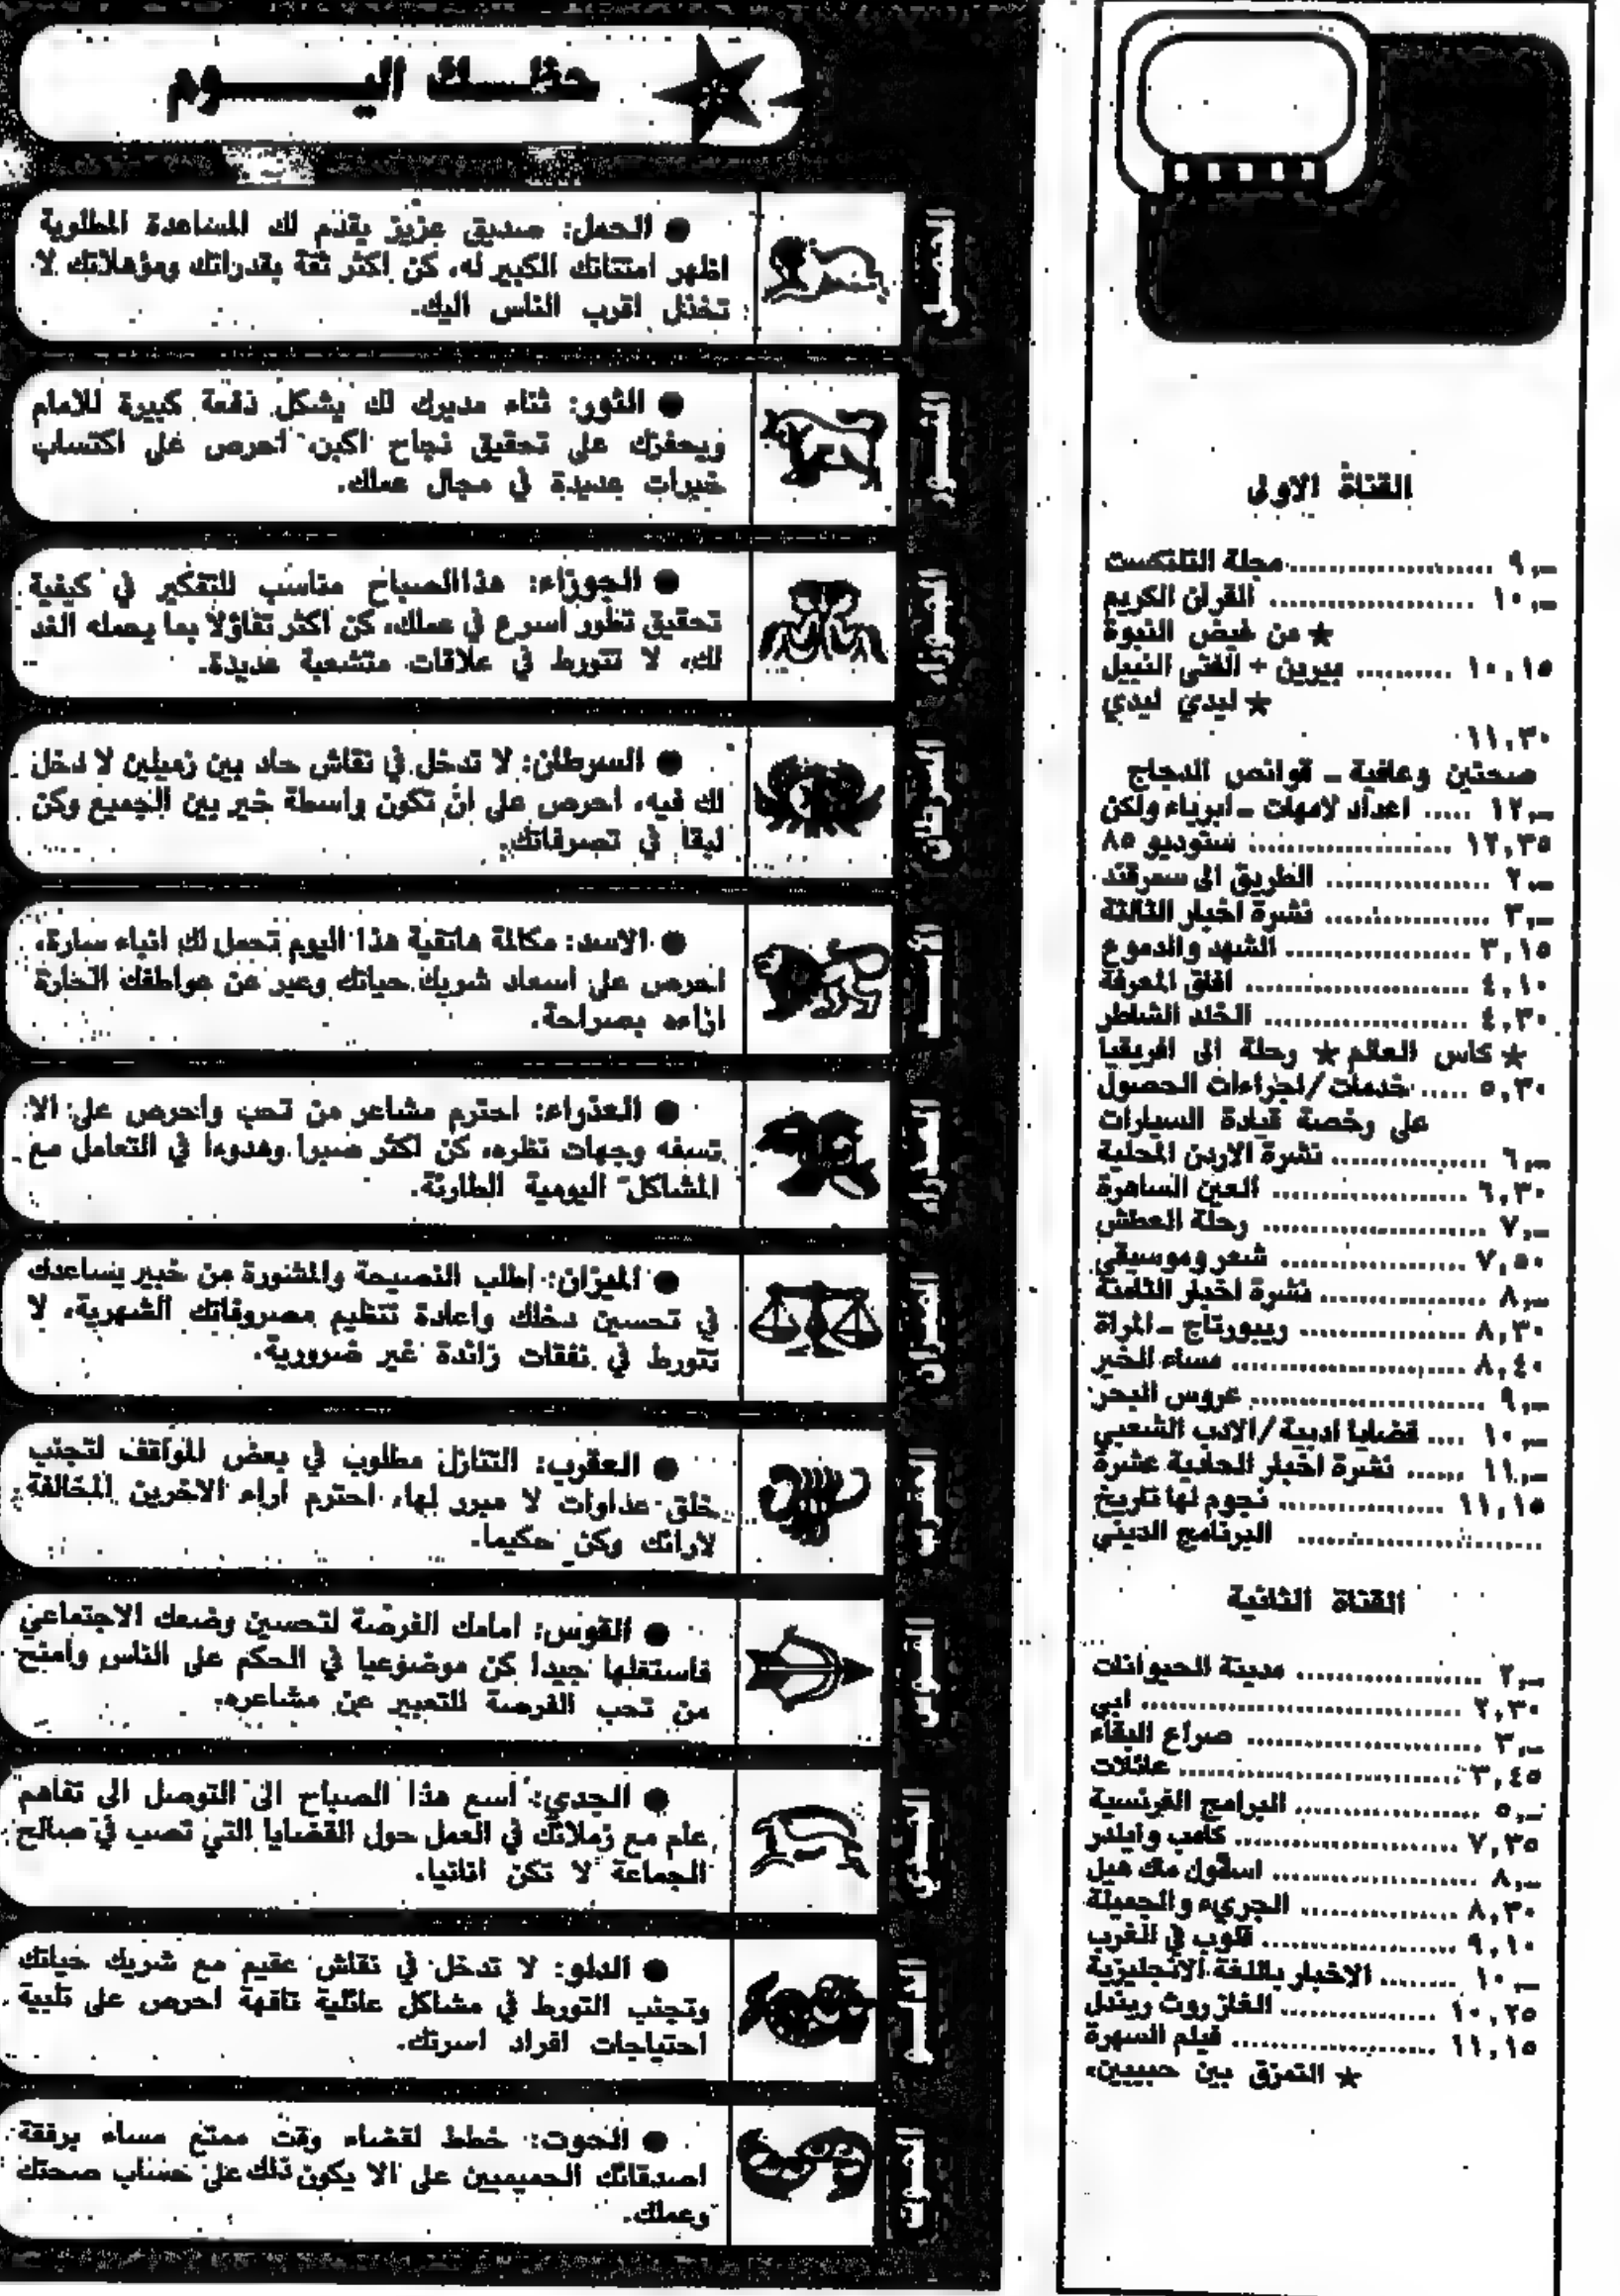 القناة الاولى
٩,ــ ..... مجلة التلتكست
١٠,ــ ..... القران الكريم
★ من فيض النبوة
١٠,١٥ ..... بيرين + الفتى النبيل
★ ليدي ليدي
١١,٣٠
صحتين وعافية ـ قوانص الدجاج
١٢,ــ ..... اعداد لامهات ـ ابرياء ولكن
١٢,٣٥ ..... ستوديو ٨٥
٢,ــ ..... الطريق الى سمرقند
٣,ــ ..... نشرة اخبار الثالثة
٣,١٥ ..... الشهد والدموع
٤,١٠ ..... افاق المعرفة
٤,٣٠ ..... الخلد الشاطر
★ كاس العالم ★ رحلة الى افريقيا
٥,٣٠ ..... خدمات/اجراءات الحصول
على رخصة قيادة السيارات
٦,ــ ..... نشرة الاردن المحلية
٦,٣٠ ..... العين الساهرة
٧,ــ ..... رحلة العطش
٧,٥٠ ..... شعر وموسيقى
٨,ــ ..... نشرة اخبار الثامنة
٨,٣٠ ..... ريبورتاج ـ المراة
٨,٤٠ ..... مساء الخير
٩,ــ ..... عروس البحر
١٠,ــ ..... قضايا ادبية/الادب الشعبي
١١,ــ ..... نشرة اخبار الحادية عشرة
١١,١٥ ..... نجوم لها تاريخ
..... البرنامج الديني
القناة الثانية
٢,ــ ..... مدينة الحيوانات
٢,٣٠ ..... ابي
٣,ــ ..... صراع البقاء
٣,٤٥ ..... عائلات
٥,ــ ..... البرامج الفرنسية
٧,٣٥ ..... كامب وايلدر
٨,ــ ..... اسقول مك هيل
٨,٣٠ ..... الجريء والجميلة
٩,١٠ ..... قلوب في الغرب
١٠,ــ ..... الاخبار باللغة الانجليزية
١٠,٢٥ ..... الغاز روث ريندل
١١,١٥ ..... فيلم السهرة
★ التمزق بين حبيبين،
حظـــك اليـــــوم
الحمـل
● الحمل: صديق عزيز يقدم لك المساعدة المطلوبة
اظهر امتنانك الكبير له، كن اكثر ثقة بقدراتك ومؤهلاتك لا
تخذل اقرب الناس اليك.
الثـور
● الثور: ثناء مديرك لك يشكل دفعة كبيرة للامام
ويحفزك على تحقيق نجاح اكبر احرص على اكتساب
خبرات جديدة في مجال عملك.
الجوزاء
● الجوزاء: هذا الصباح مناسب للتفكير في كيفية
تحقيق تطور اسرع في عملك، كن اكثر تفاؤلا بما يحمله الغد
لك، لا تتورط في علاقات متشعبة عديدة.
السرطان
● السرطان: لا تدخل في نقاش حاد بين زميلين لا دخل
لك فيه، احرص على ان تكون واسطة خير بين الجميع وكن
لبقا في تصرفاتك.
الأسد
● الاسد: مكالمة هاتفية هذا اليوم تحمل لك انباء سارة،
احرص على اسعاد شريك حياتك وعبر عن عواطفك الحارة
ازاءه بصراحة.
العذراء
● العذراء: احترم مشاعر من تحب واحرص على الا
تسفه وجهات نظره، كن اكثر صبرا وهدوءا في التعامل مع
المشاكل اليومية الطارئة.
الميزان
● الميزان: اطلب النصيحة والمشورة من خبير يساعدك
في تحسين دخلك واعادة تنظيم مصروفاتك الشهرية، لا
تتورط في نفقات زائدة غير ضرورية.
العقرب
● العقرب: التنازل مطلوب في بعض المواقف لتجنب
خلق عداوات لا مبرر لها، احترم اراء الاخرين المخالفة
لارائك وكن حكيما.
القوس
● القوس: امامك الفرصة لتحسين وضعك الاجتماعي
فاستغلها جيدا كن موضوعيا في الحكم على الناس وامنح
من تحب الفرصة للتعبير عن مشاعره.
الجدي
● الجدي: اسع هذا الصباح الى التوصل الى تفاهم
عام مع زملائك في العمل حول القضايا التي تصب في صالح
الجماعة لا تكن انانيا.
الدلو
● الدلو: لا تدخل في نقاش عقيم مع شريك حياتك
وتجنب التورط في مشاكل عائلية تافهة احرص على تلبية
احتياجات افراد اسرتك.
الحوت
● الحوت: خطط لقضاء وقت ممتع مساء برفقة
اصدقائك الحميميين على الا يكون ذلك على حساب صحتك
وعملك.